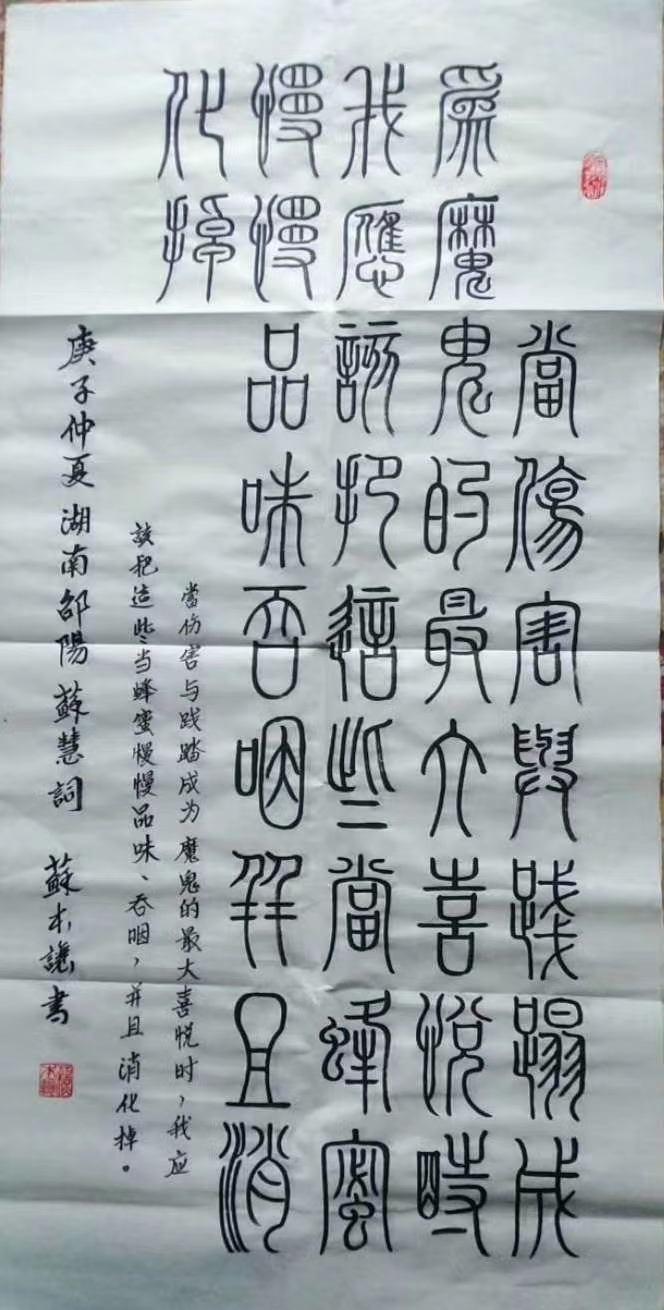 當傷害與踐蹋成
爲魔鬼的最大喜悅時
我應該把這些當蜂蜜
慢慢品味吞咽并且消
化掉
當伤害与践踏成为魔鬼的最大喜悦时，我应
該把這些当蜂蜜慢慢品味、吞咽，并且消化掉。
庚子仲夏湖南邵陽蘇慧詞
蘇本書